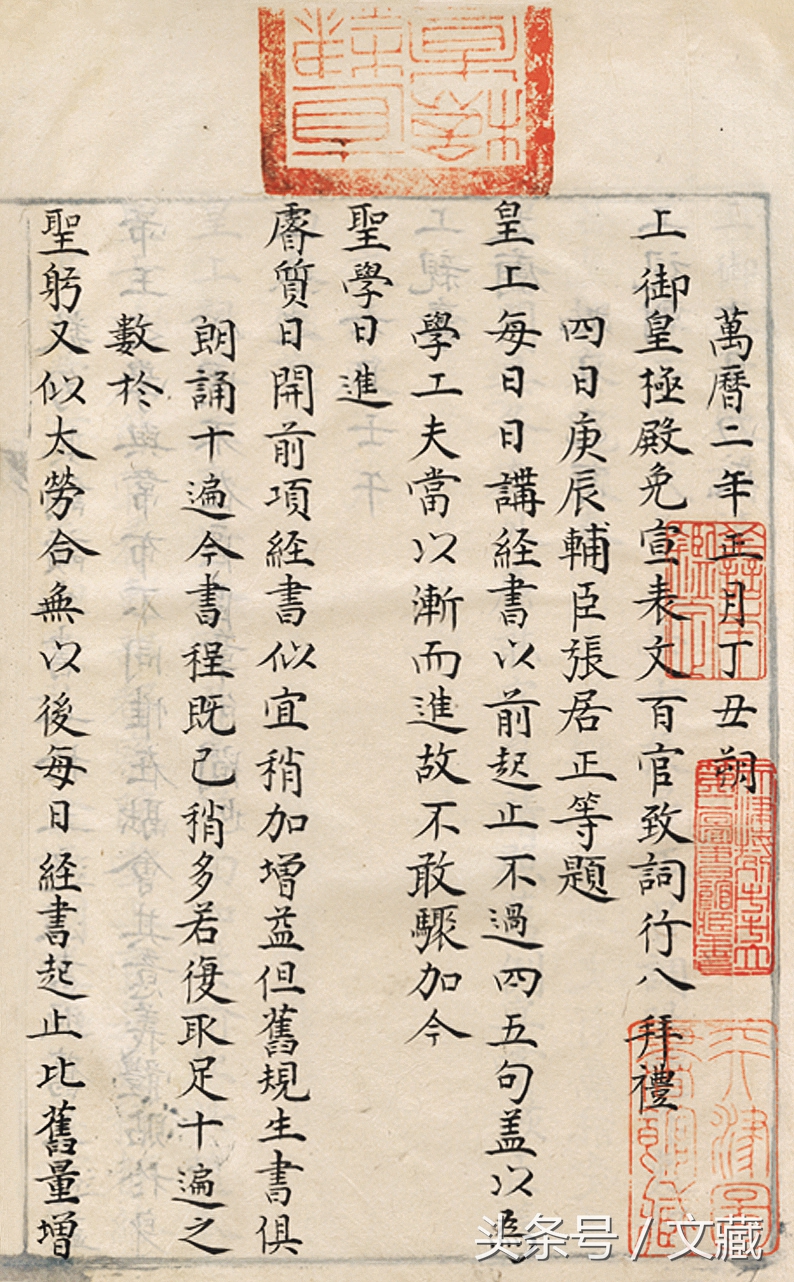 萬曆二年正月丁丑朔
上御皇極殿免宣表文百官致詞行八拜禮
四日庚辰輔臣張居正等題
皇上每日日講経書以前起止不過四五句盖以為
學工夫當以漸而進故不敢驟加今
聖學日進
睿質日開前項経書似宜稍加增益但舊規生書俱
朗誦十遍今書程既已稍多若復取足十遍之
數於
聖躬又似太勞合無以後每日経書起止比舊量增
头条号 / 文藏